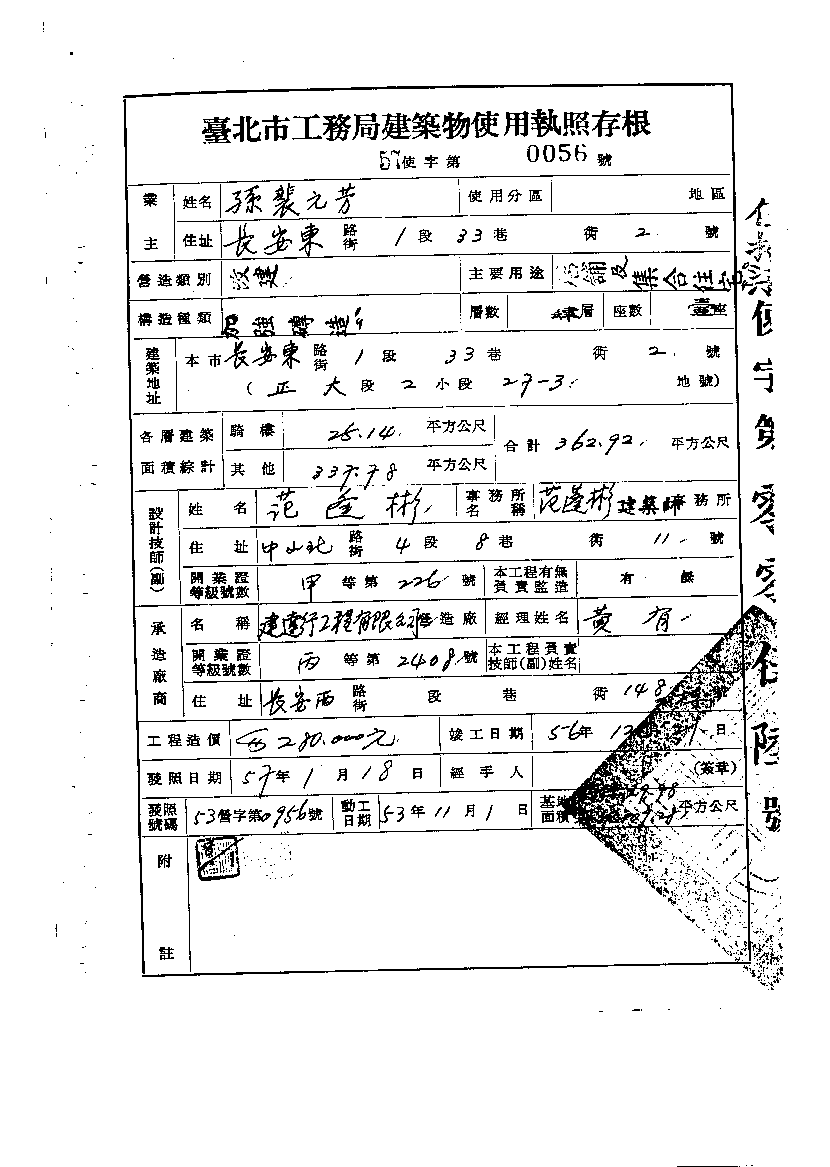 臺北市工務局建築物使用執照存根
57使字第 0056 號
業主 姓名 孫裴元芳 使用分區 地區
住址 長安東 路街 1 段 33 巷 街 2 號
營造類別 改建 主要用途 店舖及集合住宅
構造種類 加強磚造 層數 肆層 座數 壹座
建築地址 本市 長安東 路街 1 段 33 巷 街 2 號
(正大段 2 小段 27-3 地號)
各層建築面積綜計 騎樓 25.14 平方公尺 合計 362.92 平方公尺
其他 337.78 平方公尺
設計技師(副) 姓名 范逢彬 事務所名稱 范逢彬建築師事務所
住址 中山北 路街 4 段 8 巷 街 11 號
開業證等級號數 甲等第 226 號 本工程有無負責監造 有
承造廠商 名稱 建達行工程有限公司營造廠 經理姓名 黃有
開業證等級號數 丙等第 2408 號 本工程負責技師(副)姓名
住址 長安西 路街 段 巷 街 148 號
工程造價 280,000元 竣工日期 56年 日
發照日期 57年 1 月 18 日 經手人 (簽章)
發照號碼 53營字第0956號 動工日期 53年 11 月 1 日 基地面積 平方公尺
附註
使字第零零伍陸號